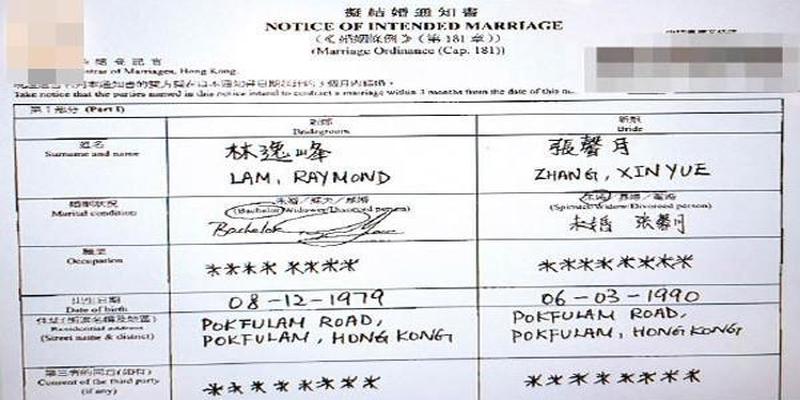 擬結婚通知書
NOTICE OF INTENDED MARRIAGE
(《婚姻條例》(第 181 章))
(Marriage Ordinance (Cap. 181))
of Marriages, Hong Kong.
Take notice that the parties named in this notice intend to contract a marriage within 3 months from the date of this
第 1 部分 (Part I)
新郎
Bridegroom
新娘
Bride
姓名
Surname and name
林逸峰
LAM, RAYMOND
張馨月
ZHANG, XINYUE
婚姻狀況
Marital condition
(Bachelor/Widower/Divorced person)
Bachelor
(Spinster/Widow/Divorced person)
未婚 張馨月
職業
Occupation
******* *****
*********
出生日期
Date of birth
08-12-1979
06-03-1990
Residential address
(Street name & district)
POKFULAM ROAD,
POKFULAM, HONG KONG
POKFULAM ROAD,
POKFULAM, HONG KONG
Consent of the third party
(if any)
********
*********